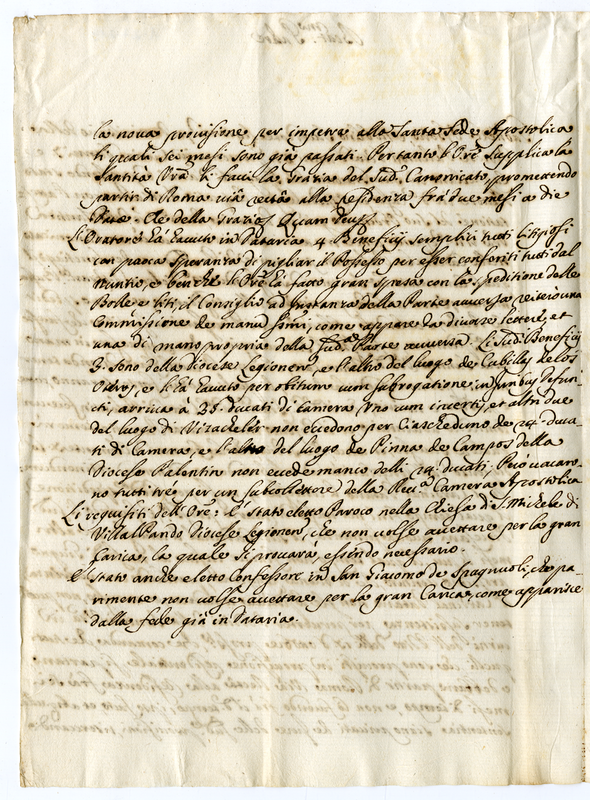 la nova provisione per impetra alla Santa Sede Apostolica
li quali sei mesi sono già passati. Per tanto l'Ore Supplica la
Santità Vra li facci la Grazia del Sud.o Canonicato, promettendo
partir di Roma via retta alla residenza frà due mesi a die
Datæ. Che della Grazia Quam Deus
L'Oratore hà havuto in Dataria 4. Beneficij semplici tutti litigiosi
con poca speranza di pigliar il Possesso per esser conferiti tutti dal
Nuntio, e benche l'Ore hà fatto gran spesa con la speditione delle
Bolle e liti, il Consiglio ad instanza della Parte avversa
Commissione de manu Simi, come appare da diverse lettere, et
una di mano propria della Sud.a Parte avversa. Li Sud.i Beneficij
3. sono della Diocese Legionen, e l'altro del luogo de Cubillas de los
Oteros, e li hà havuto per obitum cum subrogatione in juribus defun-
cti, arriva à 35. ducati di Camera uno cum incertis, et altri due
del luogo di non excedono per Ciascheduno de 24. duca-
ti di Camera, e l'altro del luogo de Pinna de Campos della
Diocese Palentin non excede manco delli 24. ducati. Però vacaro-
no tutti trè per un subcollettore della Rev. Camera Apostolica
Li requisiti dell'Ore: È stato eletto Paroco nella Chiesa di S. Michele di
Villalpando Diocese Legionen, che non volse accettare per la gran
Carica, la quale si provarà, essendo necessario.
È stato anche eletto Confessore in San Giacomo de Spagnuoli, che pa-
rimente non volse accettare per la gran Carica, come apparisce
dalla fede già in Dataria.